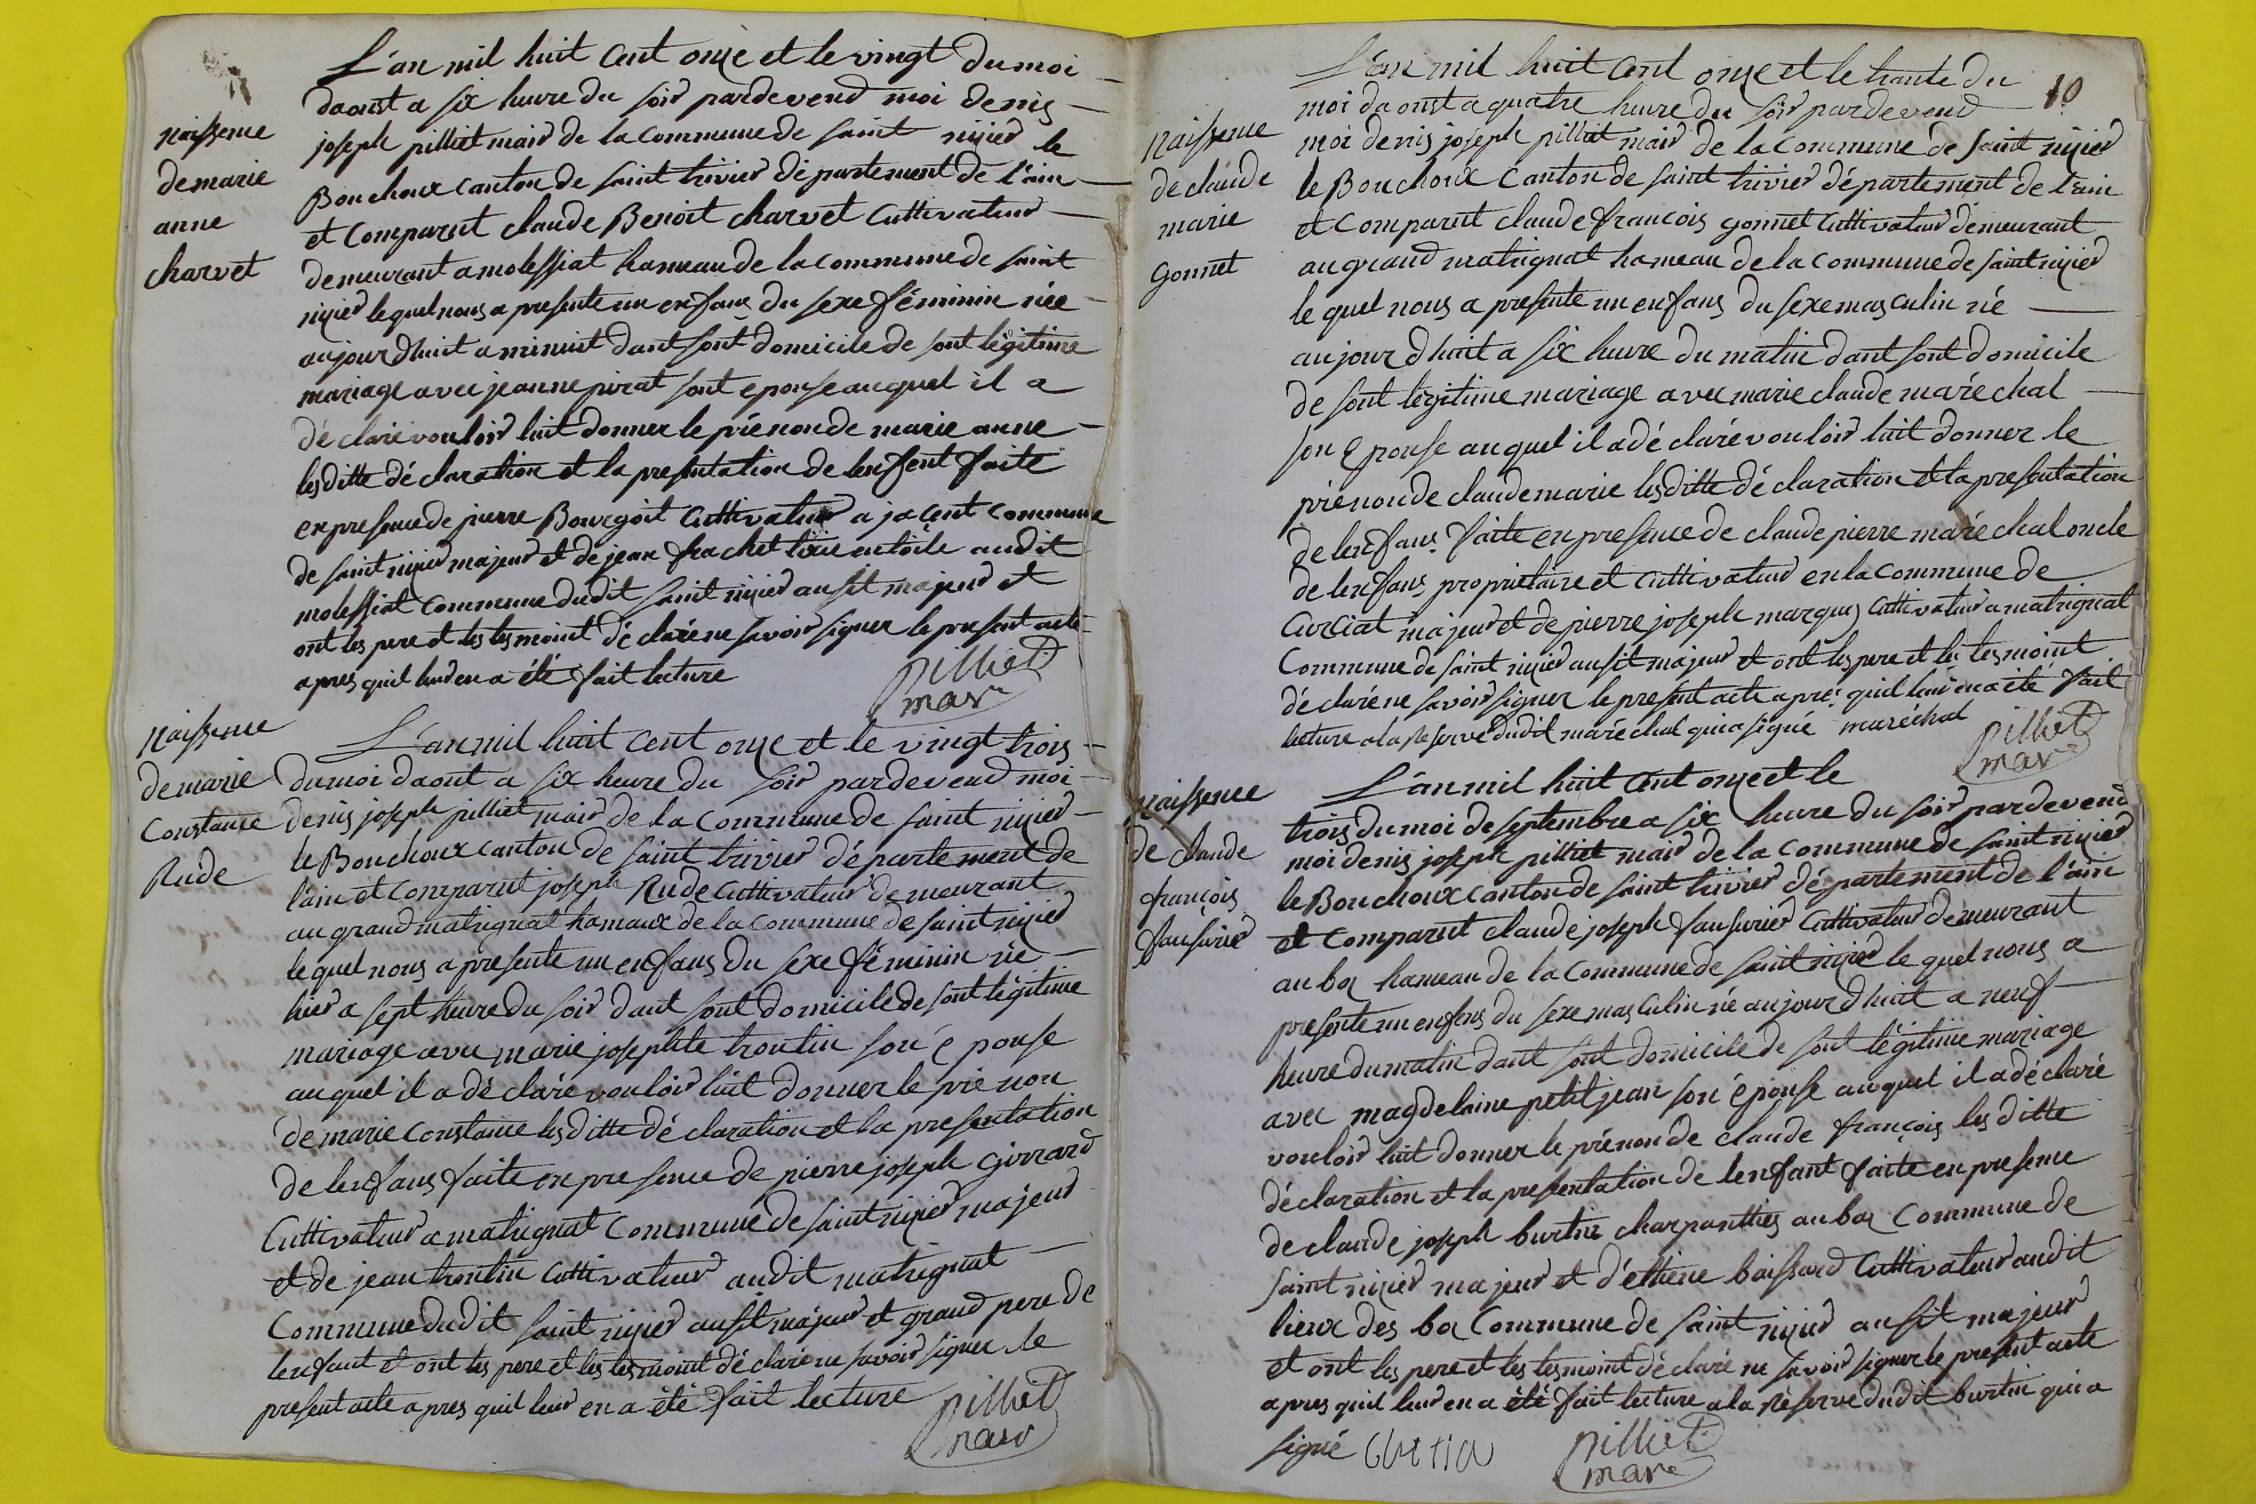 L'an mil huit Cent onze et le vingt du moi
daoust a six heure du soir pardevend moi denis
joseph pilliet mair de la commune de saint nizier le
Bouchoux canton de saint trivier département de l'ain
et Comparut claude Benoit charvet Cuttivateur
demeurant a molessiat hameau de la commune de saint
nizier lequel nous a presente un enfans du sexe féminin née
aujourdhuit a minuit dant sont domicile de sont légitime
mariage avec jeanne pirat sont epouse auquel il a
déclaré vouloir luit donner le prénon de marie anne
lesditte déclaration et la presentation de lenfent faite
en presence de pierre Bourgoit Cuttivateur a jacent commune
de saint nizier majeur et de jean frachet audit
molessiat commune dudit saint nizier ausit majeur et
ont les pere et les tesmoint déclaré ne savoir signer le present acte
apres quil leur en a été fait lecture
pilliet
mair
naissence
de marie
anne
charvet
naissence
de marie
Constance
Rude
L'an mil huit Cent onze et le vingt trois
du moi daout a six heure du soir pardevend moi
denis joseph pilliet mair de la commune de saint nizier
le Bouchoux canton de saint trivier département de
l'ain et Comparut joseph Rude Cuttivateur demeurant
au grand matrignat hamaux de la commune de saint nizier
lequel nous a presente un enfans du sexe féminin né
hier a sept heure du soir dant sont domicile de sont légitime
mariage avec marie josephte troutin son épouse
auquel il a déclaré vouloir luit donner le prénon
de marie constance lesditte déclaration et la presentation
de lenfans faite en presence de pierre joseph Girrard
Cuttivateur a matrignat commune de saint nizier majeur
et de jean troutin Cuttivateur audit matrignat
Commune dudit saint nizier ausit majeur et grand pere de
lenfant et ont les pere et les tesmoint déclaré ne savoir signer le
present acte apres quil leur en a été fait lecture
pilliet
mair
10
L'an mil huit Cent onze et le trante du
moi daoust a quatre heure du soir pardevend
moi denis joseph pilliet mair de la commune de saint nizier
le Bouchoux Canton de saint trivier département de l'ain
et Comparut claude francois gonnet Cuttivateur demeurant
au grand matrignat hameau de la commune de saint nizier
le quel nous a presente un enfans du sexe masculin né
aujourdhuit a six heure du matin dant sont domicile
de sont légitime mariage avec marie claude maréchal
son epouse auquel il a déclaré vouloir luit donner le
prénon de claude marie lesditte déclaration et la presentation
de lenfans faite en presence de claude pierre maréchal oncle
de lenfans proprietaire et Cuttivateur en la commune de
Curciat majeur et de pierre joseph marquis Cuttivateur a matrignat
Commune de saint nizier ausit majeur et ont les pere et les tesmoint
déclaré ne savoir signer le present acte apres quil leur en a été fait
lecture a la reserve dudit maréchal qui a signé maréchal
pilliet
mair
naissence
de claude
marie
gonnet
naissence
de claude
françois
fausurier
L'an mil huit Cent onze et le
trois du moi de septembre a six heure du soir pardevend
moi denis joseph pilliet mair de la commune de saint nizier
le Bouchoux canton de saint trivier département de l'ain
et Comparut claude joseph fausurier Cuttivateur demeurant
au boz hameau de la commune de saint nizier le quel nous a
presente un enfens du sexe masculin né aujourdhuit a neuf
heure du matin dant sont domicile de sont légitime mariage
avec magdelaine petit jean son épouse auquel il a déclaré
vouloir luit donner le prénon de claude françois lesditte
déclaration et la presentation de lenfant faite en presence
de claude joseph burtin charpanthies au boz Commune de
saint nizier majeur et d'ettiene baissard Cuttivateur audit
lieux des boz Commune de saint nizier ausit majeur
et ont les pere et les tesmoint déclaré ne savoir signer le present acte
apres quil leur en a été fait lecture a la réserve dudit burtin qui a
signé burtin
pilliet
mair